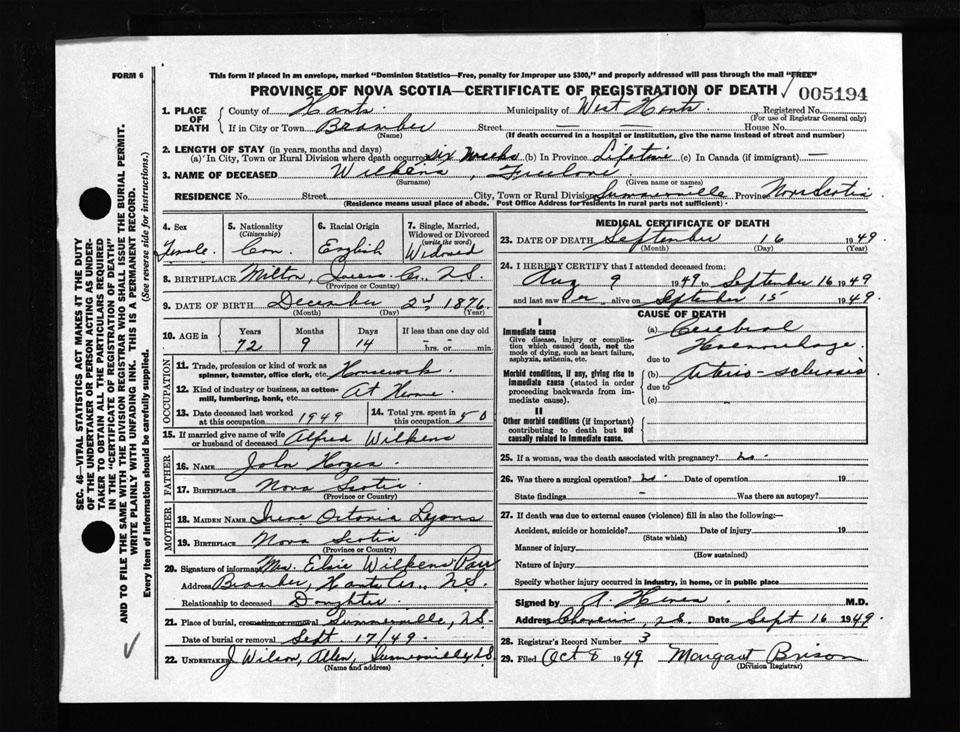 FORM 6
This form if placed in an envelope, marked "Dominion Statistics—Free, penalty for improper use $300," and properly addressed will pass through the mail "FREE"
PROVINCE OF NOVA SCOTIA—CERTIFICATE OF REGISTRATION OF DEATH 005194
1. PLACE OF DEATH
County of Hants Municipality of West Hants. Registered No.
(For use of Registrar General only)
If in City or Town Bramber Street — House No. —
(Name) (If death occurred in a hospital or institution, give the name instead of street and number)
2. LENGTH OF STAY (in years, months and days)
(a) In City, Town or Rural Division where death occurred six weeks (b) In Province Lifetime (c) In Canada (if immigrant) —
3. NAME OF DECEASED Wilkens, Freelove
(Surname) (Given name or names)
RESIDENCE No. Street City, Town or Rural Division Summerville Province Nova Scotia
(Residence means usual place of abode. Post Office Address for residents in rural parts not sufficient)
4. Sex Female
5. Nationality (Citizenship) Can.
6. Racial Origin English
7. Single, Married, Widowed or Divorced (write the word) Widowed
8. BIRTHPLACE Milton, Queens Co., N.S.
(Province or Country)
9. DATE OF BIRTH December 2nd, 1876
(Month) (Day) (Year)
10. AGE in Years Months Days If less than one day old
72 9 14 hrs. or min.
OCCUPATION
11. Trade, profession or kind of work as spinner, teamster, office clerk, etc. Housework
12. Kind of industry or business, as cotton-mill, lumbering, bank, etc. At Home
13. Date deceased last worked at this occupation 1949
14. Total yrs. spent in 50
15. If married give name of wife or husband of deceased Alfred Wilkens
FATHER
16. NAME John
17. BIRTHPLACE Nova Scotia
(Province or Country)
MOTHER
18. MAIDEN NAME Irene Lyons
19. BIRTHPLACE Nova Scotia
(Province or Country)
20. Signature of informant Mrs. Elsie Wilkens
Address Bramber, Hants Co., N.S.
Relationship to deceased Daughter
21. Place of burial, cremation or removal Summerville, N.S.
Date of burial or removal Sept. 17/49.
22. UNDERTAKER J Wilson Allen, Summerville N.S.
(Name and address)
MEDICAL CERTIFICATE OF DEATH
23. DATE OF DEATH September 16 1949
(Month) (Day) (Year)
24. I HEREBY CERTIFY that I attended deceased from:
Aug 9 1949 to September 16 1949
and last saw her alive on September 15 1949
CAUSE OF DEATH
I
Immediate cause
Give disease, injury or complication which caused death, not the mode of dying, such as heart failure, asphyxia, asthenia, etc.
(a) Cerebral Haemorrhage.
due to
Morbid conditions, if any, giving rise to immediate cause (stated in order proceeding backwards from immediate cause).
(b) Arterio-sclerosis
due to
(c)
II
Other morbid conditions (if important) contributing to death but not causally related to immediate cause.
25. If a woman, was the death associated with pregnancy? no.
26. Was there a surgical operation? no. Date of operation 19
State findings — Was there an autopsy?
27. If death was due to external causes (violence) fill in also the following:—
Accident, suicide or homicide? Date of injury 19
(State which)
Manner of injury
(How sustained)
Nature of injury
Specify whether injury occurred in industry, in home, or in public place
Signed by M.D.
Address N.S. Date Sept 16 1949
28. Registrar's Record Number 3
29. Filed Oct 8 1949 Margaret Brison
(Division Registrar)
SEC. 46—VITAL STATISTICS ACT MAKES IT THE DUTY
OF THE UNDERTAKER OR PERSON ACTING AS UNDER-
TAKER TO OBTAIN ALL THE PARTICULARS REQUIRED
IN THE "CERTIFICATE OF REGISTRATION OF DEATH"
AND TO FILE THE SAME WITH THE DIVISION REGISTRAR WHO SHALL ISSUE THE BURIAL PERMIT.
WRITE PLAINLY WITH UNFADING INK. THIS IS A PERMANENT RECORD.
Every item of Information should be carefully supplied. (See reverse side for instructions.)